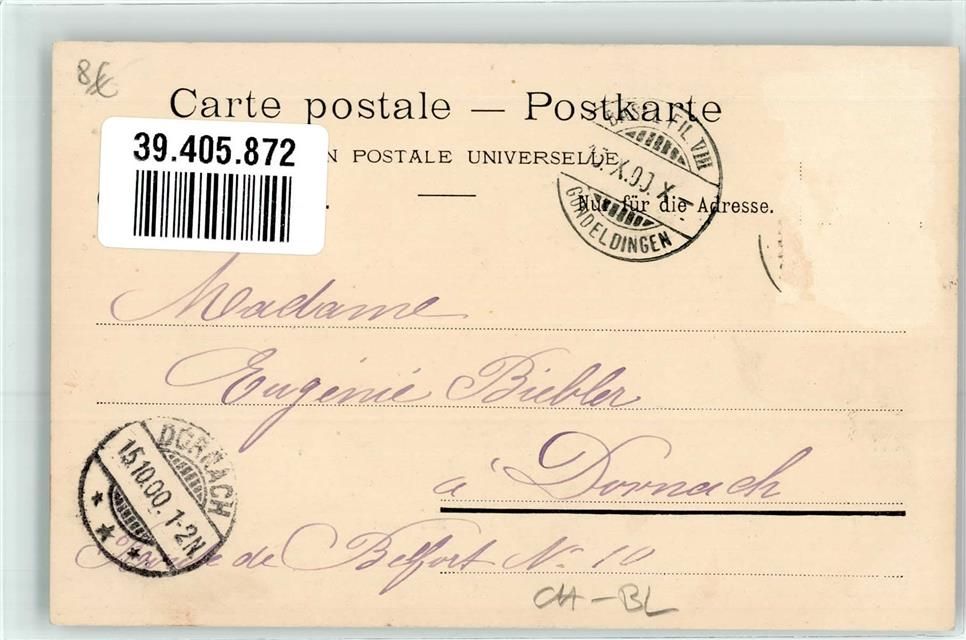 8€
Carte postale — Postkarte
39.405.872
N POSTALE UNIVERSELLE
Nur für die Adresse.
BASEL FIL. VIII
X.00.X-
GUNDELDINGEN
Madame
Eugénie Biebler
à Dornach
DORNACH
15.10.00.1-2N
de Belfort No 10
CH-BL